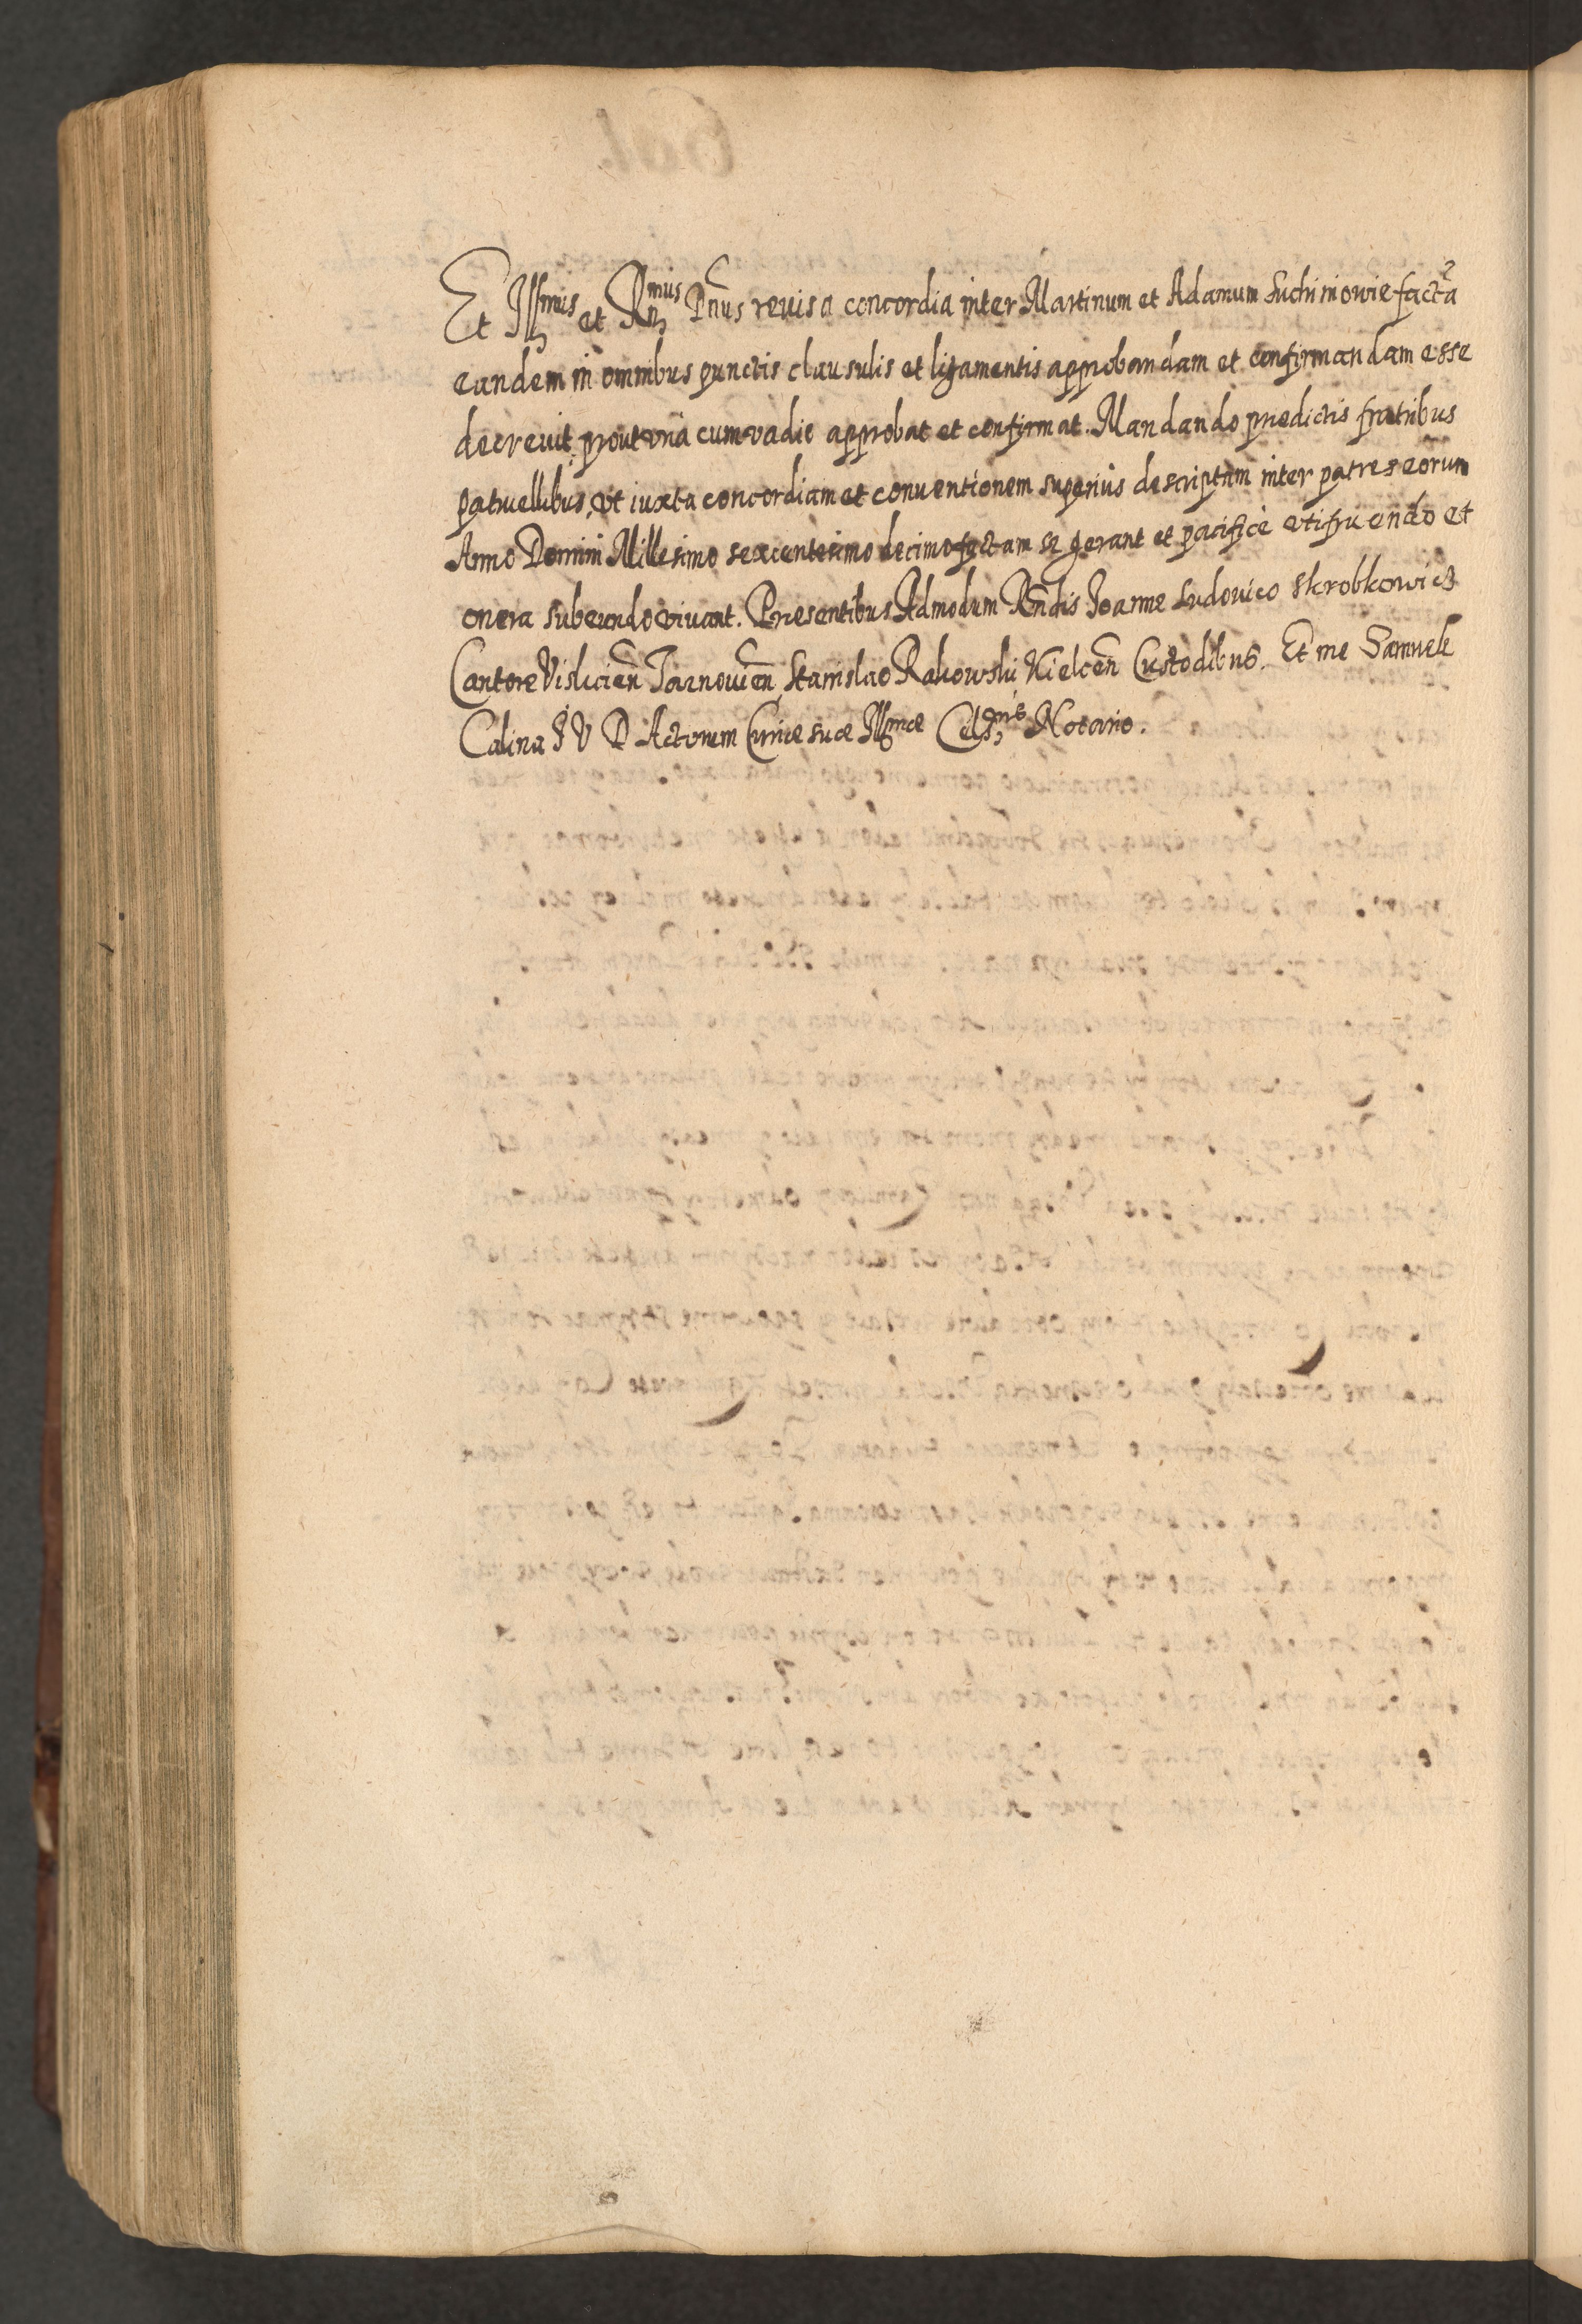 Et Illmus et Rmus Dnus reuisa concordia inter Martinum et Adamum Suchiniowie facta
eandem in omnibus punctis clausulis et ligamentis approbandam et confirmandam esse
decreuit, prout vna cum vadio approbat et confirmat. Mandando prædictis fratribus
patruellibus, vt iuxta concordiam et conuentionem superius descriptam inter patres eorum
Anno Domini Millesimo sexcentesimo decimo factam se gerant et pacifice vtifruendo et
onera subeundo viuant. Præsentibus Admodum Rndis Joanne Ludouico Skrobkowicz
Cantore Vislicien Tarnouien, Stanislao Rakowski Kielcen Custodibus. Et me Samuele
Calina J V D Actorum Curiæ suæ Illmæ Celsnis Notario.